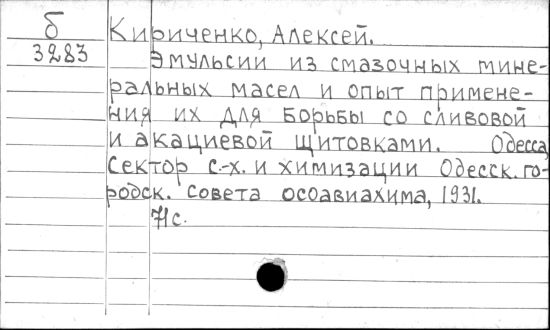 б
3283
Кириченко, Алексей.
Эмульсии из смазочных мине-
ральных масел и опыт примене-
ния их для борьбы со сливовой
и акациевой щитовками. Одесса,
Сектор с.-х. и химизации Одесск. го-
родск. совета осоавиахима, 1931.
71 с.